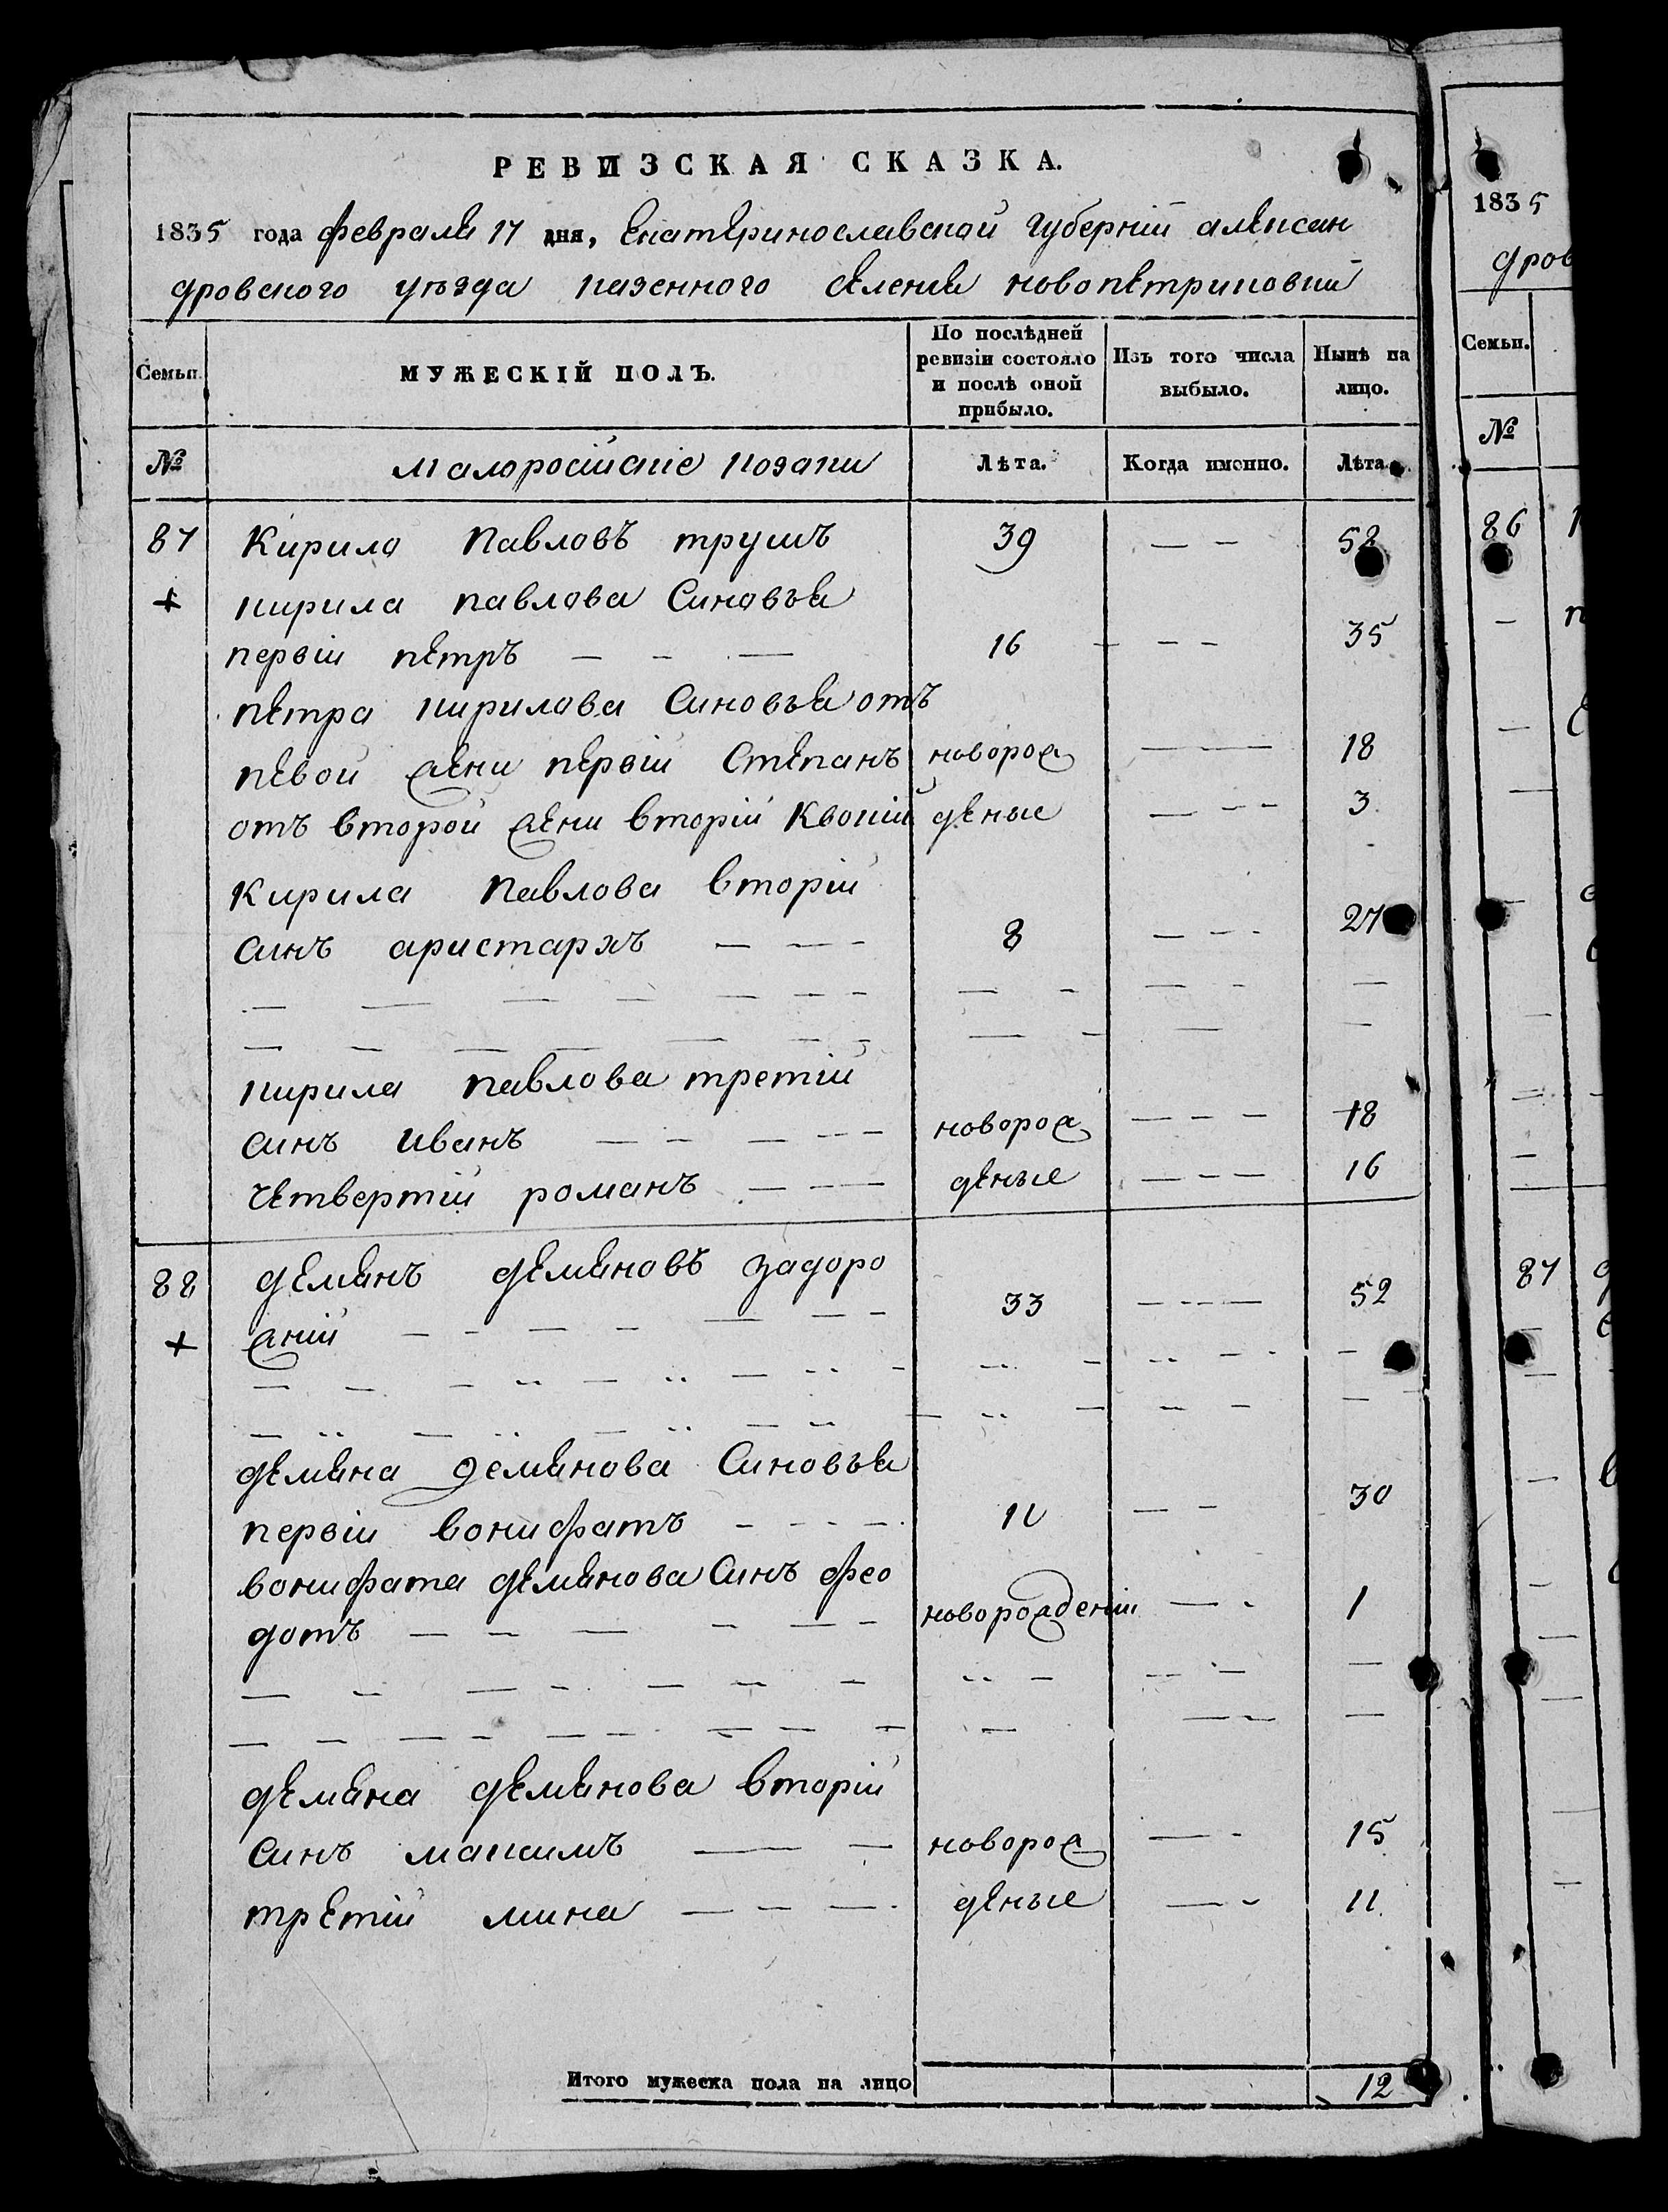 РЕВИЗСКАЯ СКАЗКА.
1835 года февраля 17 дня, Екатеринославской губерніи алексан
дровского уѣзда казенного селения новопетриковки
Семьи. МУЖЕСКІЙ ПОЛЪ. По послѣдней ревизіи состояло и послѣ оной прибыло. Изъ того числа выбыло. Нынѣ на лицо.
№ малоросійскіе козаки Лѣта. Когда именно. Лѣта.
87 Кирило Павловъ трушъ 39 — - 58
+ кирила павлова Синовья
первій петръ — - — 16 — - - 35
петра кирилова Синовья отъ
певой жени первій Степанъ новорож — — 18
отъ второй жени вторій деные — - - 3
Кирила Павлова вторій
синъ аристархъ — — - 8 — - - 27
кирила павлова третій
синъ иванъ — - — - - новорож — - - 18
Четвертій романъ — - — деные — - — 16
88 демянъ демяновъ задоро
+ жній — - — - — - - 33 — - — 52
демяна демянова Синовья
первій вонифатъ - - - - 11 — - 30
вонифата демянова Синъ фео
дотъ — - — - — - новорожденій — - 1
демяна демянова вторій
синъ максимъ — — новорож — - 15
третій мина — - - - деные — - 11
Итого мужеска пола на лицо 12
1835
дров
Семьи.
№
86
87